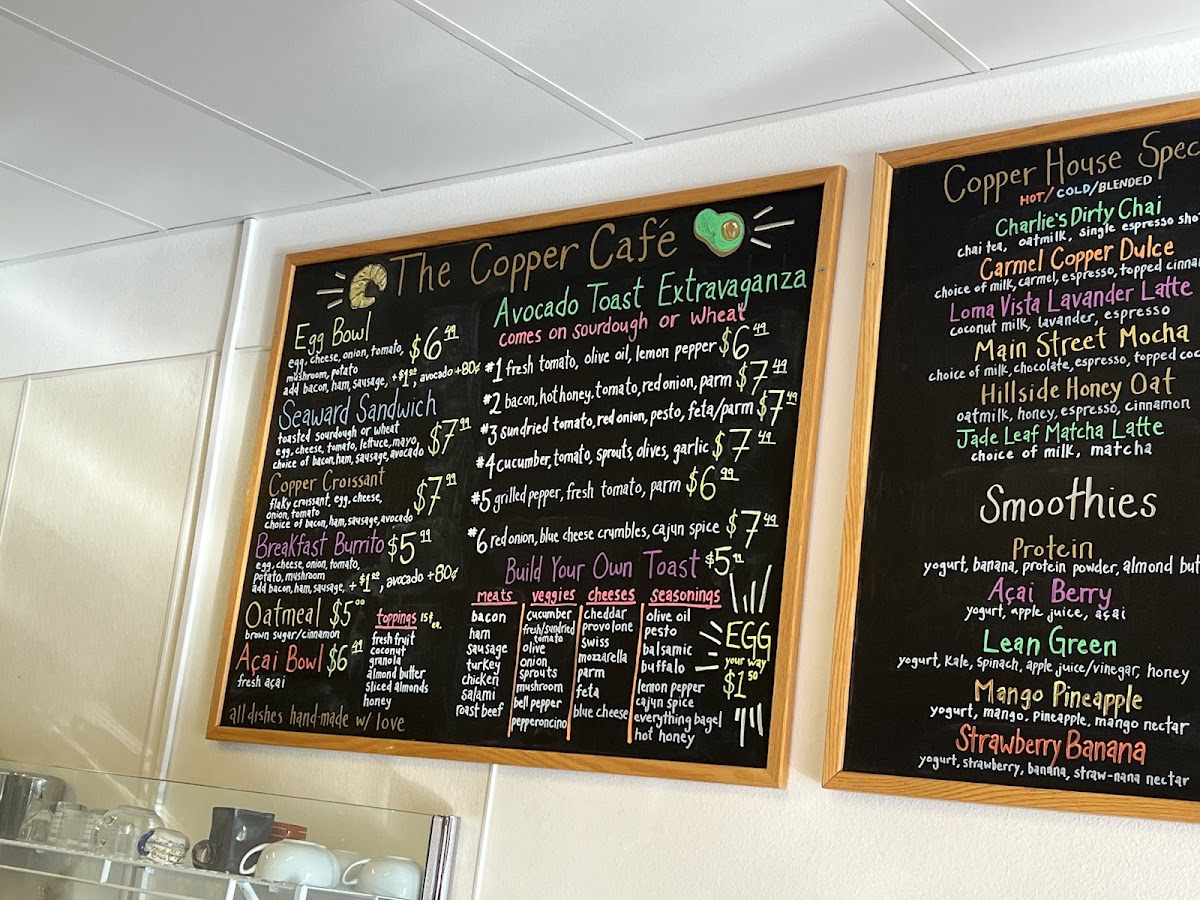 The Copper Café
Egg Bowl
egg, cheese, onion, tomato, $6.49
mushroom, potato
add bacon, ham, sausage, +$1.00, avocado +80¢
Seaward Sandwich
toasted sourdough or wheat
egg, cheese, tomato, lettuce, mayo, $7.99
choice of bacon, ham, sausage, avocado
Copper Croissant
flaky croissant, egg, cheese, $7.99
onion, tomato
choice of bacon, ham, sausage, avocado
Breakfast Burrito $5.99
egg, cheese, onion, tomato,
potato, mushroom
add bacon, ham, sausage, +$1.00, avocado +80¢
Oatmeal $5.00
brown sugar/cinnamon
Açai Bowl $6.49
fresh açai
toppings 75¢ ea.
fresh fruit
coconut
granola
almond butter
sliced almonds
honey
all dishes hand-made w/ love
Avocado Toast Extravaganza
comes on sourdough or wheat
#1 fresh tomato, olive oil, lemon pepper $6.49
#2 bacon, hot honey, tomato, red onion, parm $7.49
#3 sundried tomato, red onion, pesto, feta/parm $7.49
#4 cucumber, tomato, sprouts, olives, garlic $7.49
#5 grilled pepper, fresh tomato, parm $6.99
#6 red onion, blue cheese crumbles, cajun spice $7.49
Build Your Own Toast $5.99
meats
bacon
ham
sausage
turkey
chicken
salami
roast beef
veggies
cucumber
fresh/sundried
tomato
olive
onion
sprouts
mushroom
bell pepper
pepperoncino
cheeses
cheddar
provolone
swiss
mozzarella
parm
feta
blue cheese
seasonings
olive oil
pesto
balsamic
buffalo
lemon pepper
cajun spice
everything bagel
hot honey
EGG
your way
$1.50
Copper House Spec
HOT/COLD/BLENDED
Charlie's Dirty Chai
chai tea, oatmilk, single espresso sho
Carmel Copper Dulce
choice of milk, carmel, espresso, topped cinna
Loma Vista Lavander Latte
coconut milk, lavander, espresso
Main Street Mocha
choice of milk, chocolate, espresso, topped coc
Hillside Honey Oat
oatmilk, honey, espresso, cinnamon
Jade Leaf Matcha Latte
choice of milk, matcha
Smoothies
Protein
yogurt, banana, protein powder, almond but
Açai Berry
yogurt, apple juice, açai
Lean Green
yogurt, kale, spinach, apple juice/vinegar, honey
Mango Pineapple
yogurt, mango, pineapple, mango nectar
Strawberry Banana
yogurt, strawberry, banana, straw-nana nectar